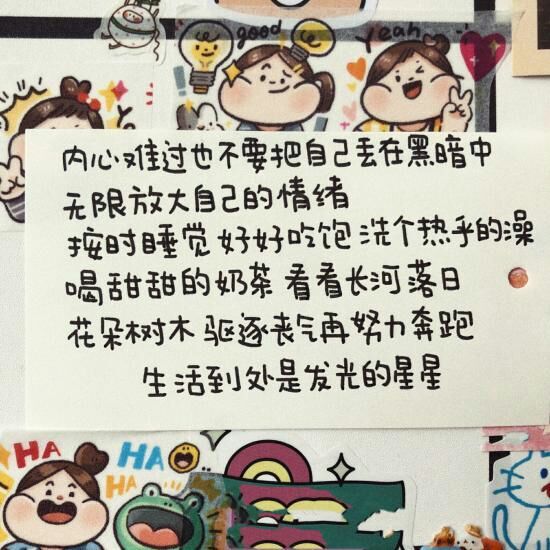 good
yeah
内心难过也不要把自己丢在黑暗中
无限放大自己的情绪
按时睡觉 好好吃饱 洗个热乎的澡
喝甜甜的奶茶 看看长河落日
花朵树木 驱逐丧气再努力奔跑
生活到处是发光的星星
HA
HA
HA